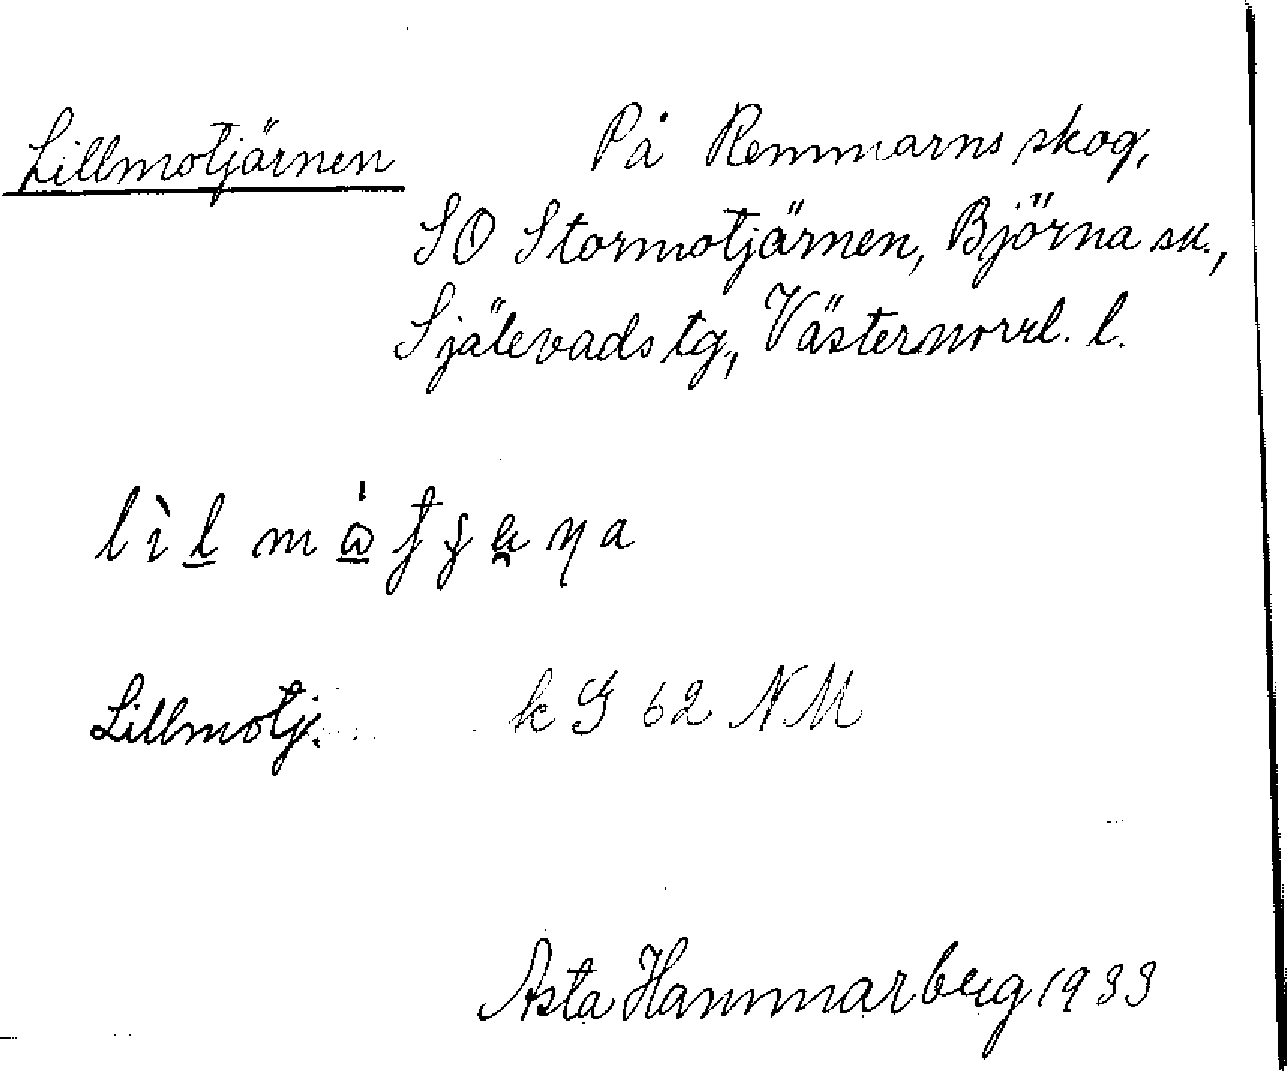 Lillmotjärnen
På Remmarns skog,
SO Stormotjärnen, Björna sn.,
Själevads tg., Västernorrl. l.
Lillmotj. k G 62 NM
Asta Hammarberg 1933